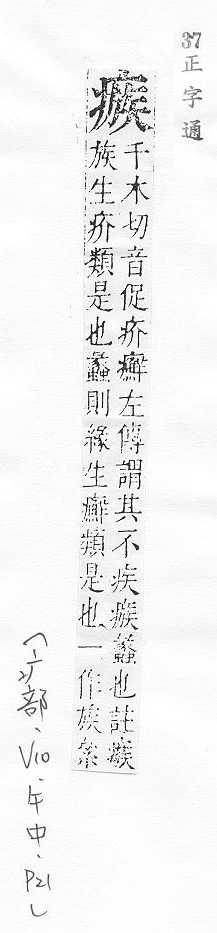 37 正字通
瘯
千木切音促疥癬左傳謂其不疾瘯蠡也註瘯
族生疥類是也蠡則緣生癬類是也一作族絫
(疒部、V10、午中、P21)